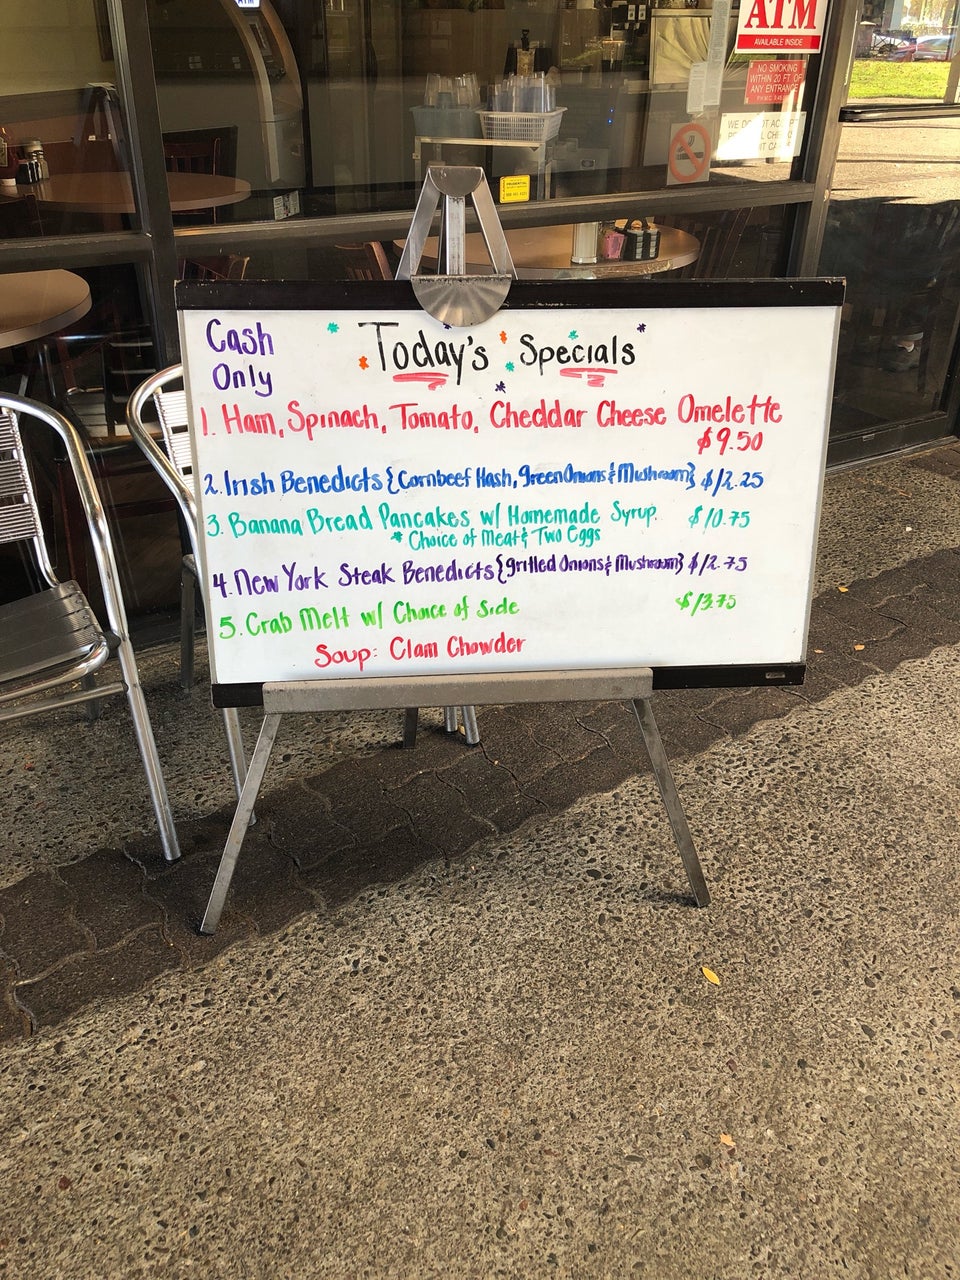 ATM
AVAILABLE INSIDE
NO SMOKING
WITHIN 20 FT. OF
ANY ENTRANCE
WE DO NOT ACCEPT
Cash
Only
Today's Specials
1. Ham, Spinach, Tomato, Cheddar Cheese Omelette
$9.50
2. Irish Benedicts {Cornbeef Hash, Green Onions & Mushroom} $12.25
3. Banana Bread Pancakes w/ Homemade Syrup. $10.75
* Choice of Meat & Two Eggs
4. New York Steak Benedicts {grilled Onions & Mushroom} $12.75
5. Crab Melt w/ Choice of Side $13.75
Soup: Clam Chowder